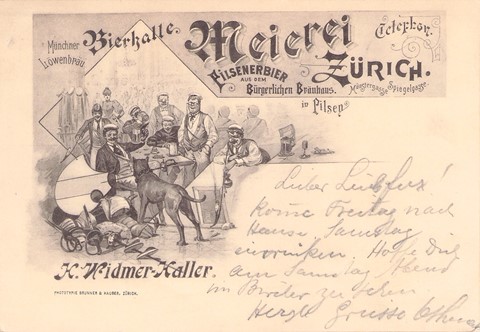 Münchner
Löwenbräu.
Bierhalle
Meierei
Telephon.
PILSENERBIER
AUS DEM
Bürgerlichen Bräuhaus.
in Pilsen
ZÜRICH.
Münstergasse Spiegelgasse.
Lieber
komme Freitag nach
Hause. Samstag
einrücken. Hoffe Dich
am Samstag Abend
im zu sehen
Herzl. Grüsse
K. Widmer-Kaller.
PHOTOTYPIE BRUNNER & HAUSER, ZÜRICH.